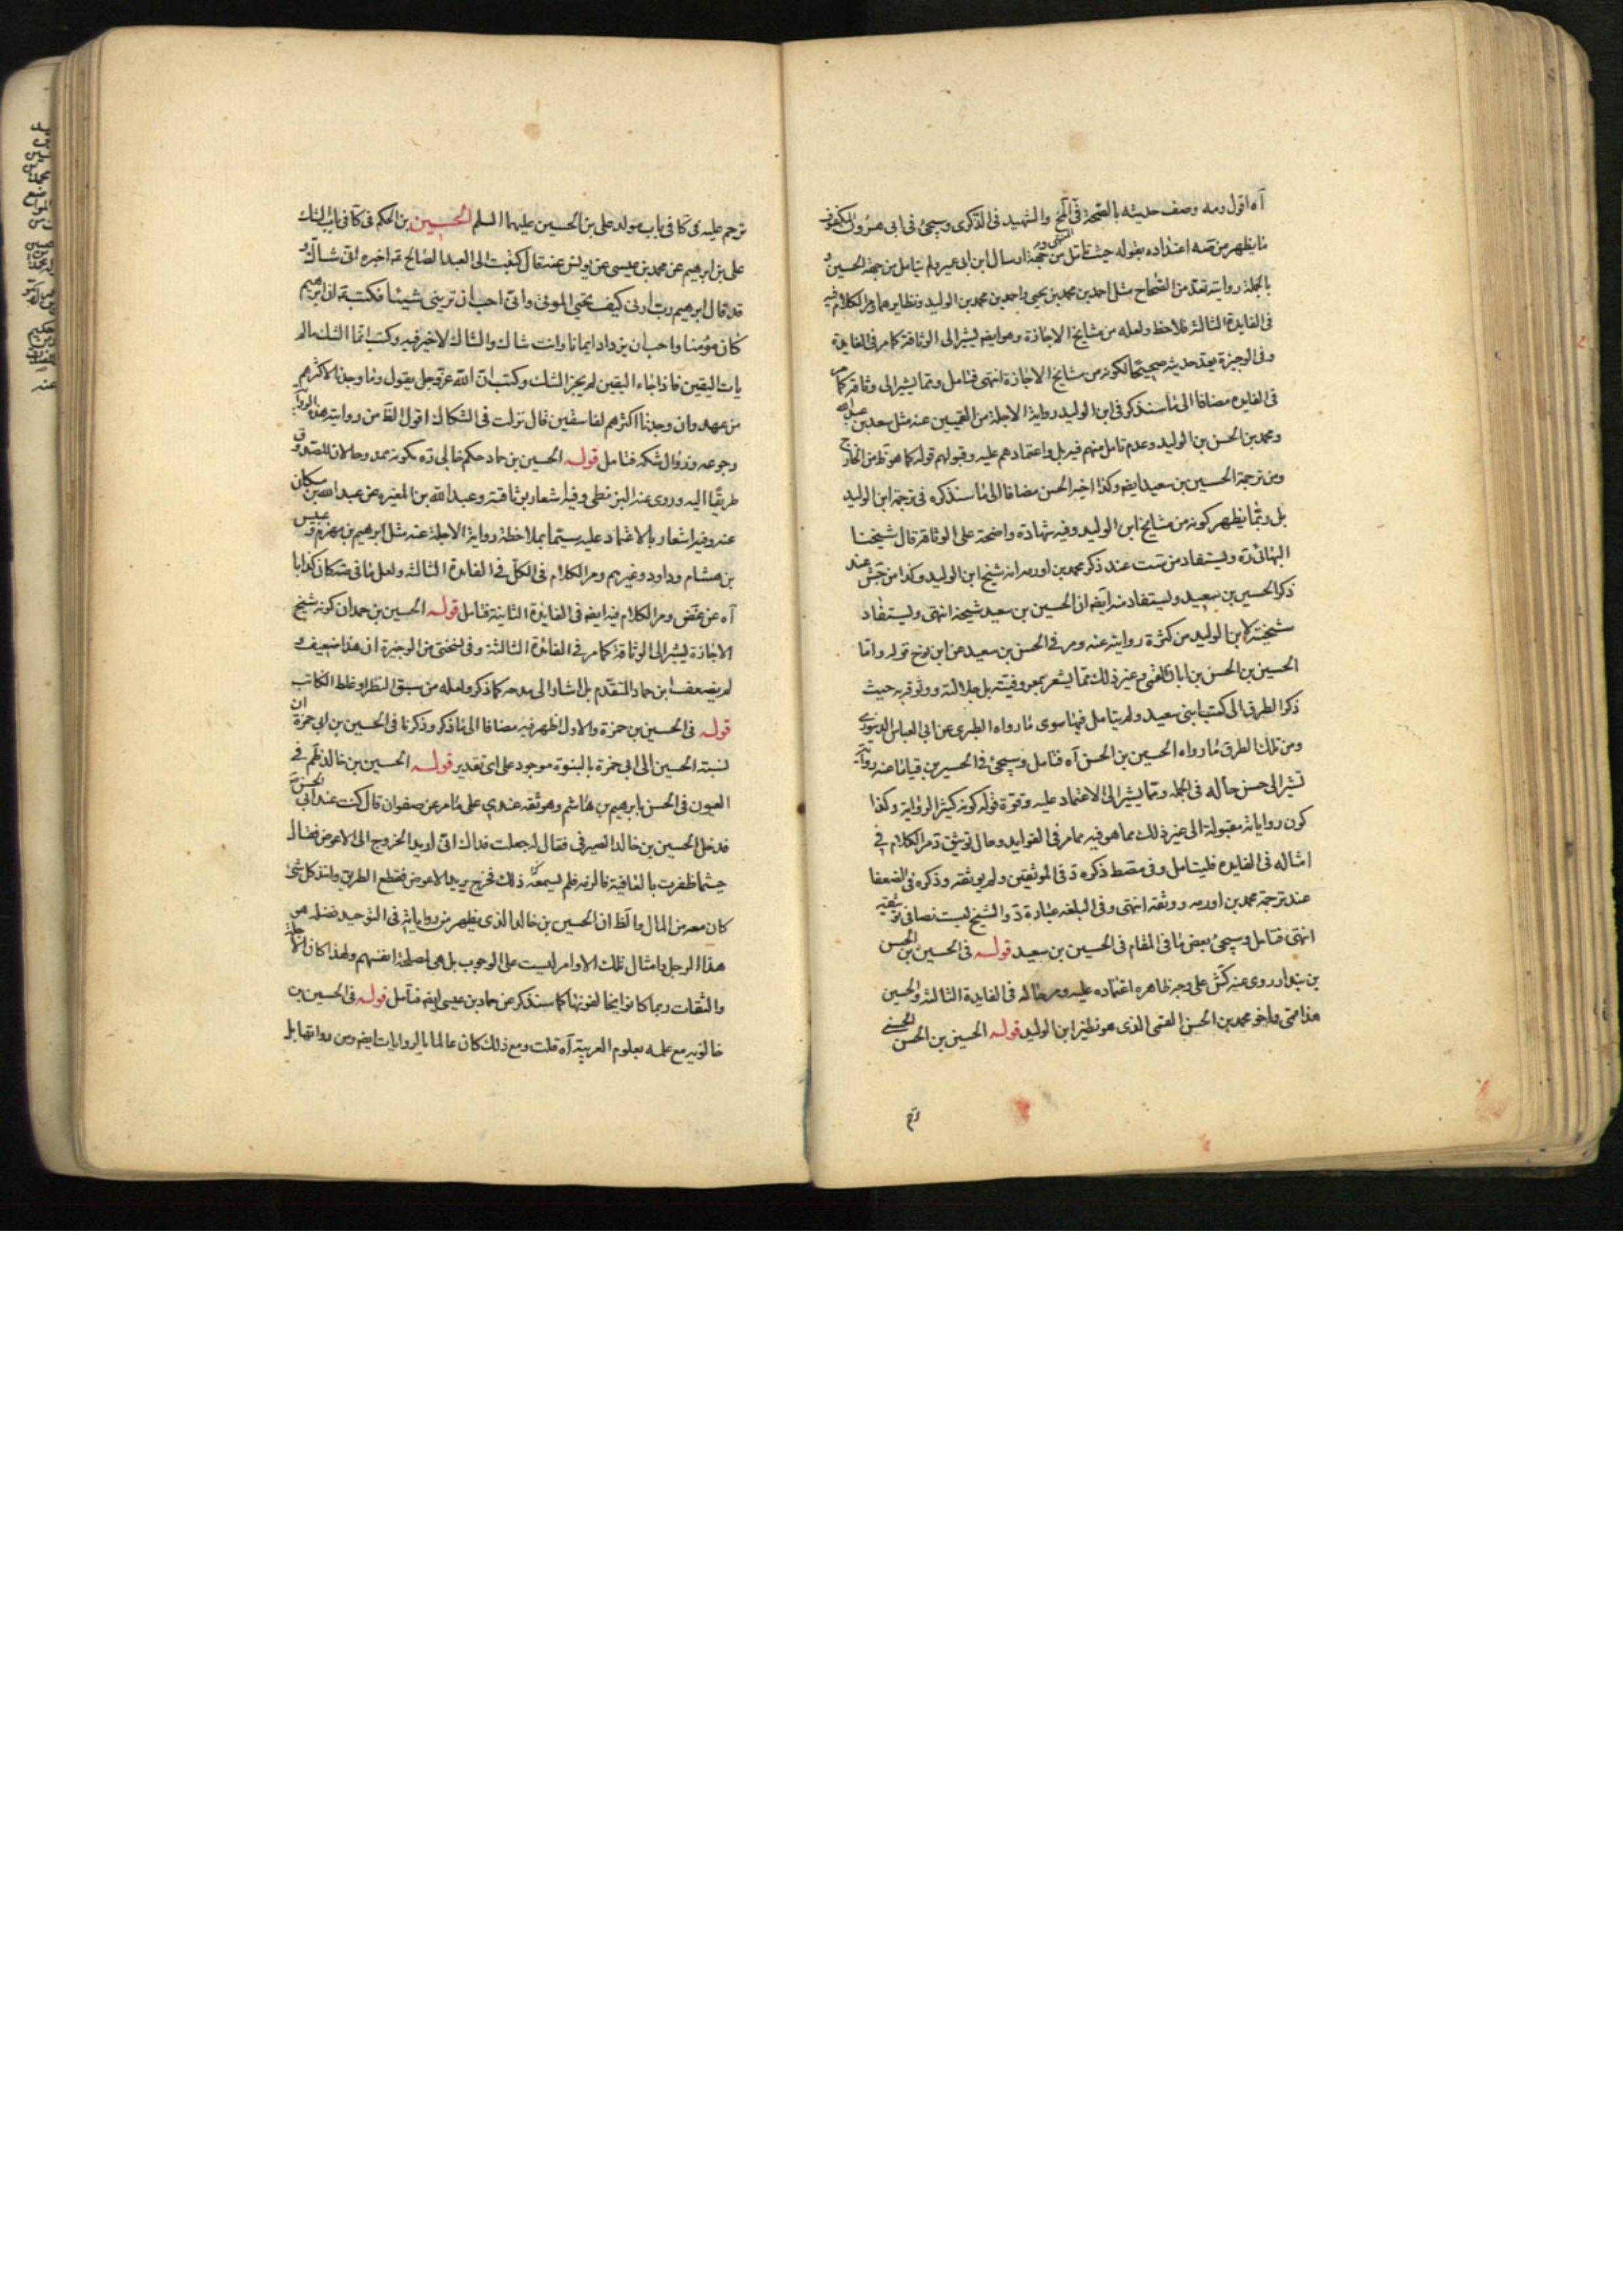 آه اقول ومه وصف حديثه بالصحة في المخ والشهيد في الذكرى وسيجئ في ابى هرون المكفوف
ما يظهر من صه اعتداده بقوله حيث تامل من جهة ارسال ابن ابى عمير ولم يتامل من جهة الحسين و
بالجملة روايته تعد من الصحاح مثل احمد بن محمد بن يحيى واحمد بن محمد بن الوليد ونظايرهما ومر الكلام فيه
في الفايدة الثالثة فلاحظ ولعله من مشايخ الاجازة وهو ايضه يشير الى الوثاقة كما مر في الفايدة
وفي الوجيزة يعد حديثه صحيحا لكونه من مشايخ الاجازة انتهى فتامل ومما يشير الى وثاقته كما مر
في الفايده مضافا الى ما سنذكر في ابن الوليد رواية الاجلة من القميين عنه مثل سعد بن عبدالله
ومحمد بن الحسن بن الوليد وعدم تامل منهم فيه بل واعتمادهم عليه وقبولهم قوله كما هو ظ من الخارج
ومن ترجمة الحسين بن سعيد ايضه وكذا اخيه الحسن مضافا الى ما سنذكره في ترجمة ابن الوليد
بل ومما يظهر كونه من مشايخ ابن الوليد وفيه شهادة واضحة على الوثاقة قال شيخنا
البهائى ره ويستفاد من ست عند ذكر محمد بن اورمه انه شيخ ابن الوليد وكذا من جش عند
ذكر الحسين بن سعيد ويستفاد منه ايضه ان الحسين بن سعيد شيخه انتهى ويستفاد
شيخيته لابن الوليد من كثرة روايته عنه ومر في الحسن بن سعيد عن ابن نوح قوله واما
الحسين بن الحسن بن ابان القمى وغير ذلك مما يشعر بمعروفيته بل جلالته ووثوقه به حيث
ذكر الطرق الى كتب ابنى سعيد ولم يتامل فيها سوى ما رواه الطبرى عن ابى العباس الدينورى
ومن تلك الطرق ما رواه الحسين بن الحسن آه فتامل وسيجئ في الحسين بن قياما عنه رواية
تشير الى حسن حاله في الجمله ومما يشير الى الاعتماد عليه وقوة قوله كونه كثير الرواية وكذا
كون رواياته مقبولة الى غير ذلك مما هو فيه مما مر في الفوايد وحال توثيق د مر الكلام في
امثاله في الفايده فليتامل وفي مصط ذكره د في الموثقين ولم يوثقه وذكره في الضعفا
عند ترجمة محمد بن اورمه ووثقه انتهى وفي البلغه عبارة د والشيخ ليست نصا في توثيقه
انتهى فتامل وسيجئ بعض ما في المقام في الحسين بن سعيد قوله في الحسين بن الحسن
بن بندار روى عنه كش على وجه ظاهره اعتماده عليه ومر حاله في الفايدة الثالثه والحسين
هذا قمى واخو محمد بن الحسن القمى الذى هو نظير ابن الوليد قوله الحسين بن الحسن الحسنى
ترحم عليه في كا في باب مولد على بن الحسين عليهما السلم الحسين بن الحكم في كا في باب الشك
على بن ابرهيم عن محمد بن عيسى عن يونس عنه قال كتبت الى العبد الصالح عه اخبره انى شاك و
قد قال ابرهيم رب ارنى كيف تحيى الموتى وانى احب ان ترينى شيئا فكتب عه ان ابرهيم
كان مؤمنا واحب ان يزداد ايمانا وانت شاك والشاك لا خير فيه وكتب انما الشك ما لم
يات اليقين فاذا جاء اليقين لم يجز الشك وكتب ان الله عز وجل يقول وما وجدنا لاكثرهم
من عهد وان وجدنا اكثرهم لفاسقين قال نزلت في الشكاك اقول الظ من روايته هذه الرواية
رجوعه وزوال شكه فتامل قوله الحسين بن حماد حكم خالى ره بكونه مده وحا لان للصدوق
طريقا اليه وروى عنه البزنطى وفيه اشعار بوثاقته وعبدالله بن المغيره عن عبدالله بن مسكان
عنه وفيه اشعار بالاعتماد عليه سيما بملاحظة رواية الاجلة عنه مثل ابرهيم بن مهزم وعبيس
بن هشام وداود وغيرهم ومر الكلام في الكل في الفايدة الثالثه ولعل ما في ضكان كذابا
آه عن غض ومر الكلام فيه ايضه في الفايدة الثانية فتامل قوله الحسين بن حمدان كونه شيخ
الاجازة يشير الى الوثاقة كما مر في الفائدة الثالثة وفي نسختى من الوجيزة ان هذا ضعيف و
لم يضعف ابن حماد المتقدم بل اشار الى مدحه كما ذكر ولعله من سبق النظر او غلط الكاتب
قوله في الحسين بن حمزة والاول اظهر فيه مضافا الى ما ذكر وذكرنا في الحسين بن ابى حمزة ان
نسبة الحسين الى ابى حمزة بالبنوة موجود على اى تقدير قوله الحسين بن خالد ظم في
العيون في الحسن بابرهيم بن هاشم وهو ثقه عندى على ما مر عن صفوان قال كنت عند ابى الحسن عه
فدخل الحسين بن خالد الصيرفى فقال له جعلت فداك انى اريد الخروج الى الاعوض فقال
حيثما ظفرت بالعافية فالزمه فلم يسمعه ذلك فخرج يريد الاعوض فقطع الطريق واخذ كل شئ
كان معه من المال والظ ان الحسين بن خالد الذى يظهر من رواياته في التوحيد فضله هو
هذا الرجل وامثال تلك الاوامر ليست على الوجوب بل هى لمصلحة انفسهم ولهذا كان الاجلة
والثقات ربما كانوا يخالفونها كما سنذكر عن حماد بن عيسى ايضه فتامل قوله في الحسين بن
خالويه مع علمه بعلوم العربية آه قلت ومع ذلك كان عالما بالروايات ايضه ومن رواتها بل